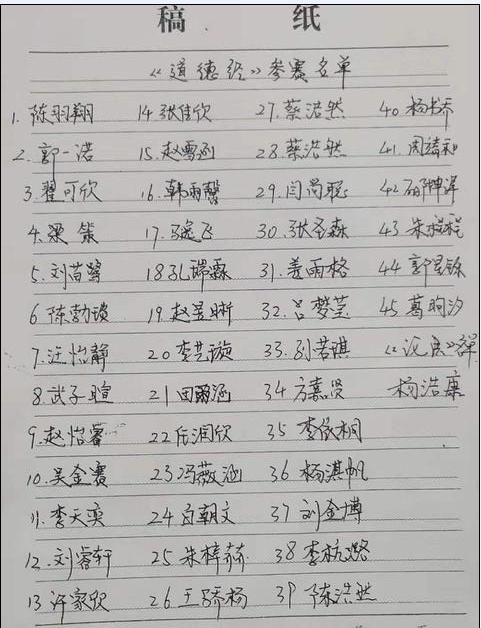 稿 纸
《道德经》参赛名单
1. 陈羽翔 14 张佳欣 27. 蔡浩然 40. 杨书乔
2. 郭一浩 15. 赵雪涵 28. 蔡浩然 41. 周禧和
3. 翟可欣 16. 韩雨馨 29. 闫尚聪 42.
4. 梁策 17. 飞 30. 张圣森 43 朱
5. 刘苗鹭 18 孔瑞霖 31. 姜雨格 44 郭星铄
6 陈勃璇 19. 赵昱晰 32. 吕梦莹 45 葛昫汐
7. 汪怡静 20 李艺璇 33. 刘若琪 《论语》单
8. 武子暄 21 田涵 34 方嘉贤 杨浩康
9. 赵怡睿 22 任润欣 35 李依桐
10. 吴金赛 23 冯薇涵 36 杨淇帆
11. 李天奕 24 白朝文 37 刘金博
12. 刘睿轩 25 朱梓赫 38 李杭璐
13 许家欣 26 王骄杨 39 陈浩然